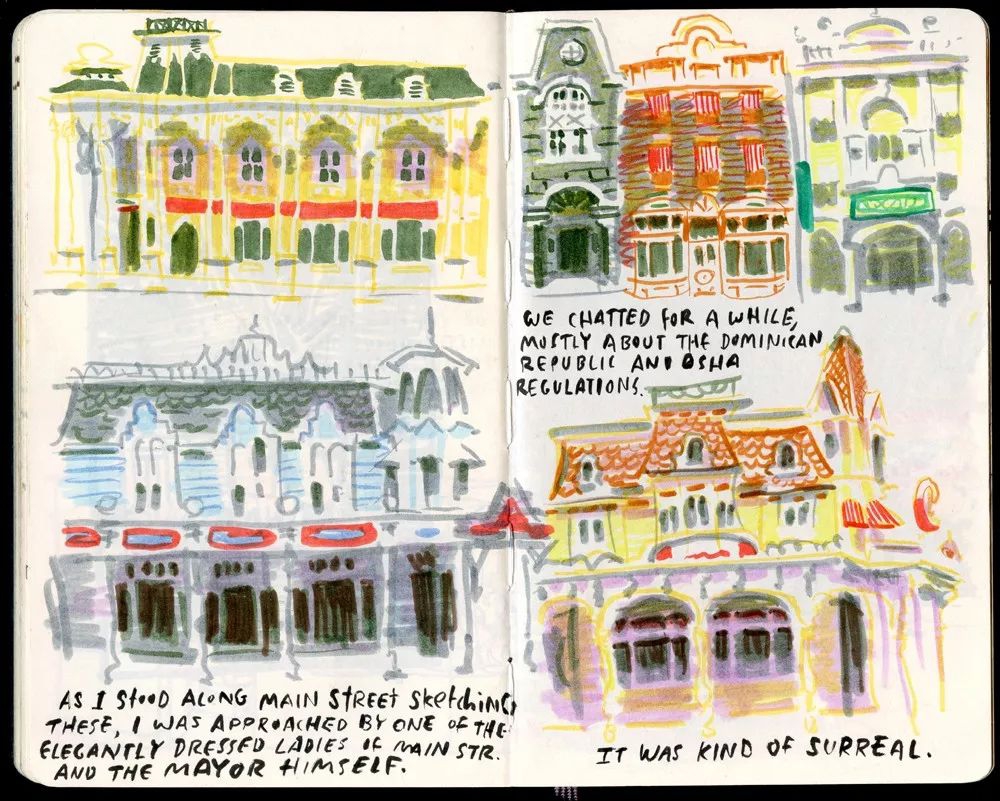 AS I STOOD ALONG MAIN STREET SKETCHING
THESE, I WAS APPROACHED BY ONE OF THE
ELEGANTLY DRESSED LADIES OF MAIN STR.
AND THE MAYOR HIMSELF.
WE CHATTED FOR A WHILE,
MOSTLY ABOUT THE DOMINICAN
REPUBLIC AND OSHA
REGULATIONS.
IT WAS KIND OF SURREAL.